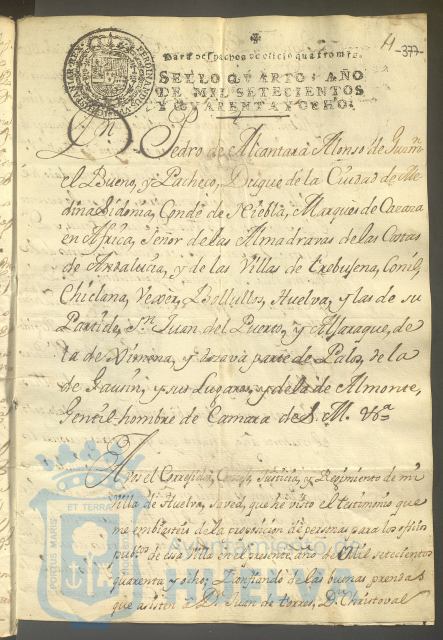 H
-377-
Para despachos de oficio quatro mrs.
SELLO QVARTO, AÑO
DE MIL SETECIENTOS
Y QVARENTA Y OCHO.
Dn. Pedro de Alcantara Alonso de Guzmn.
el Bueno, y Pacheco, Duque de la Ciudad de Me-
dinasidonia, Conde de Niebla, Marques de Cazaza
en Africa, Señor de las Almadravas de las Costas
de Andalucia, y de las Villas de Trebujena, Conil,
Chiclana, Vexer, Bollullos, Huelva, y las de su
Partido, Sn. Juan del Puerto, y Alfaraque, de
la de Ximena, y octava parte de Palos, de la
de Gausin, y sus Lugares, y de la de Almonte,
Gentil-hombre de Camara de S. M. &a.
A vos el Corregidor, Concejo, Justicia, y Regimiento de mi
Villa de Huelva, saved, que he visto el testimonio que
me embiasteis de la proposicion de personas para los oficios
publicos de esa Villa en el presente año de mil setecientos
quarenta y ocho; Y confiando de las buenas prendas
que asisten à Dn. Juan de torres, Dn. Christoval
PORTUS MARIS
ET TERRAE
Ayuntamiento de
HUELVA